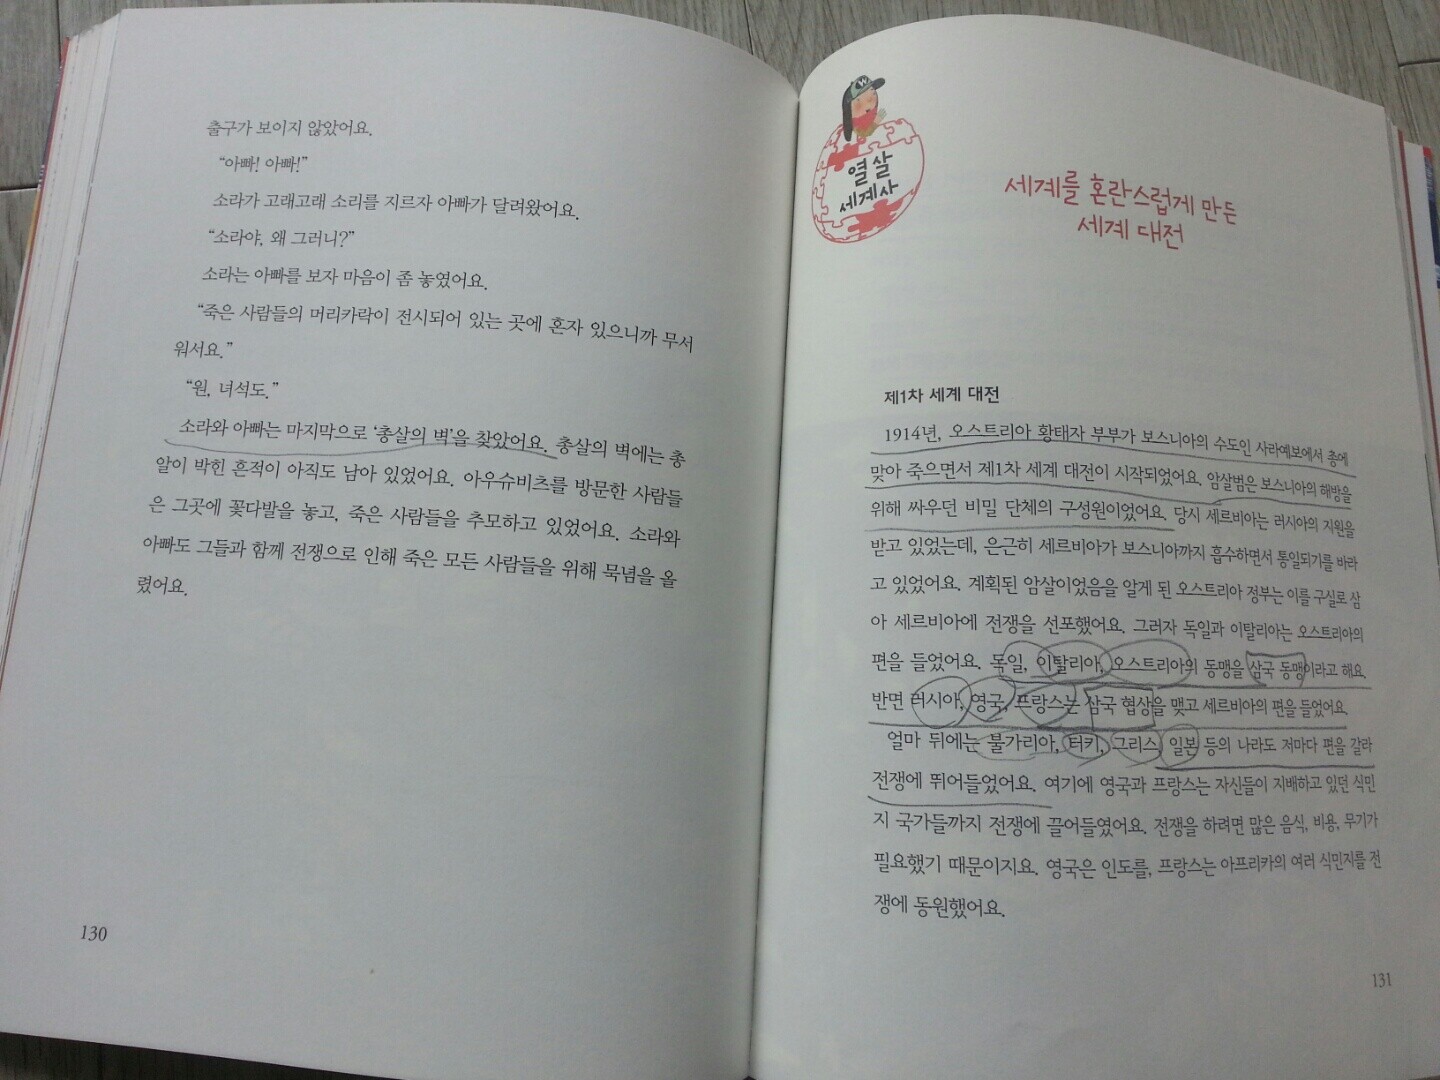 출구가 보이지 않았어요.
“아빠! 아빠!”
소라가 고래고래 소리를 지르자 아빠가 달려왔어요.
“소라야, 왜 그러니?”
소라는 아빠를 보자 마음이 좀 놓였어요.
“죽은 사람들의 머리카락이 전시되어 있는 곳에 혼자 있으니까 무서
워서요.”
“원, 녀석도.”
소라와 아빠는 마지막으로 ‘총살의 벽’을 찾았어요. 총살의 벽에는 총
알이 박힌 흔적이 아직도 남아 있었어요. 아우슈비츠를 방문한 사람들
은 그곳에 꽃다발을 놓고, 죽은 사람들을 추모하고 있었어요. 소라와
아빠도 그들과 함께 전쟁으로 인해 죽은 모든 사람들을 위해 묵념을 올
렸어요.
130
W
열 살
세계사
세계를 혼란스럽게 만든
세계 대전
제1차 세계 대전
1914년, 오스트리아 황태자 부부가 보스니아의 수도인 사라예보에서 총에
맞아 죽으면서 제1차 세계 대전이 시작되었어요. 암살범은 보스니아의 해방을
위해 싸우던 비밀 단체의 구성원이었어요. 당시 세르비아는 러시아의 지원을
받고 있었는데, 은근히 세르비아가 보스니아까지 흡수하면서 통일되기를 바라
고 있었어요. 계획된 암살이었음을 알게 된 오스트리아 정부는 이를 구실로 삼
아 세르비아에 전쟁을 선포했어요. 그러자 독일과 이탈리아는 오스트리아의
편을 들었어요. 독일, 이탈리아, 오스트리아의 동맹을 삼국 동맹이라고 해요.
반면 러시아, 영국, 프랑스는 삼국 협상을 맺고 세르비아의 편을 들었어요.
얼마 뒤에는 불가리아, 터키, 그리스, 일본 등의 나라도 저마다 편을 갈라
전쟁에 뛰어들었어요. 여기에 영국과 프랑스는 자신들이 지배하고 있던 식민
지 국가들까지 전쟁에 끌어들였어요. 전쟁을 하려면 많은 음식, 비용, 무기가
필요했기 때문이지요. 영국은 인도를, 프랑스는 아프리카의 여러 식민지를 전
쟁에 동원했어요.
131